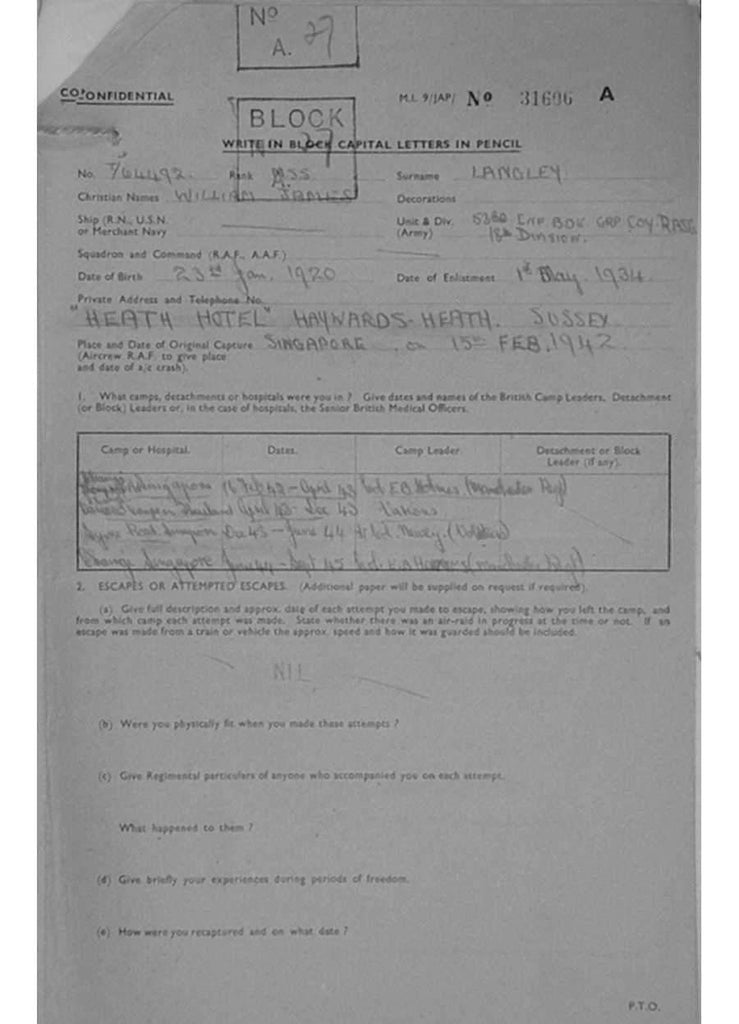 No
A. 27
CONFIDENTIAL
M.I. 9/JAP/ No 31606 A
BLOCK
27
WRITE IN BLOCK CAPITAL LETTERS IN PENCIL
No. T/64492. Rank Surname LANGLEY
Christian Names WILLIAM JAMES Decorations
Ship (R.N., U.S.N. or Merchant Navy
Unit & Div. (Army) COY. RASC
18th DIVISION.
Squadron and Command (R.A.F., A.A.F.)
Date of Birth 23rd Jan. 1920 Date of Enlistment 1st May. 1934.
Private Address and Telephone No.
"HEATH HOTEL" HAYWARDS-HEATH. SUSSEX
Place and Date of Original Capture SINGAPORE. on 15th FEB. 1942.
(Aircrew R.A.F. to give place
and date of a/c crash).
1. What camps, detachments or hospitals were you in ? Give dates and names of the British Camp Leaders, Detachment
(or Block) Leaders or, in the case of hospitals, the Senior British Medical Officers.
Camp or Hospital. Dates. Camp Leader. Detachment or Block
Leader (if any).
Singapore April 43 Col. E.B. Holmes (Manchester Regt)
Thailand April 43 - Dec 43 Various
Road Dec 43 - June 44 Lt Col.
Changi Singapore June 44 - Sept 45 Col. E.B. Holmes (Manchester Regt)
2. ESCAPES OR ATTEMPTED ESCAPES. (Additional paper will be supplied on request if required).
(a) Give full description and approx. date of each attempt you made to escape, showing how you left the camp, and
from which camp each attempt was made. State whether there was an air-raid in progress at the time or not. If an
escape was made from a train or vehicle the approx. speed and how it was guarded should be included.
NIL
(b) Were you physically fit when you made these attempts ?
(c) Give Regimental particulars of anyone who accompanied you on each attempt.
What happened to them ?
(d) Give briefly your experiences during periods of freedom.
(e) How were you recaptured and on what date ?
P.T.O.